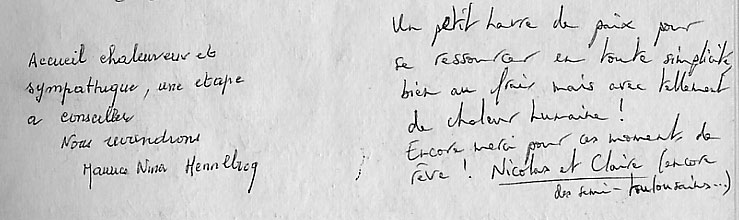 Accueil chaleureux et
sympathique, une etape
a conseiller
Nous reviendrons
Maurice Nina
Un petit havre de paix pour
se ressourcer en toute simplicité,
bien au frais mais avec tellement
de chaleur humaine !
Encore merci pour ces moments de
rêve ! Nicolas et Claire (encore
des semi-toulousains...)